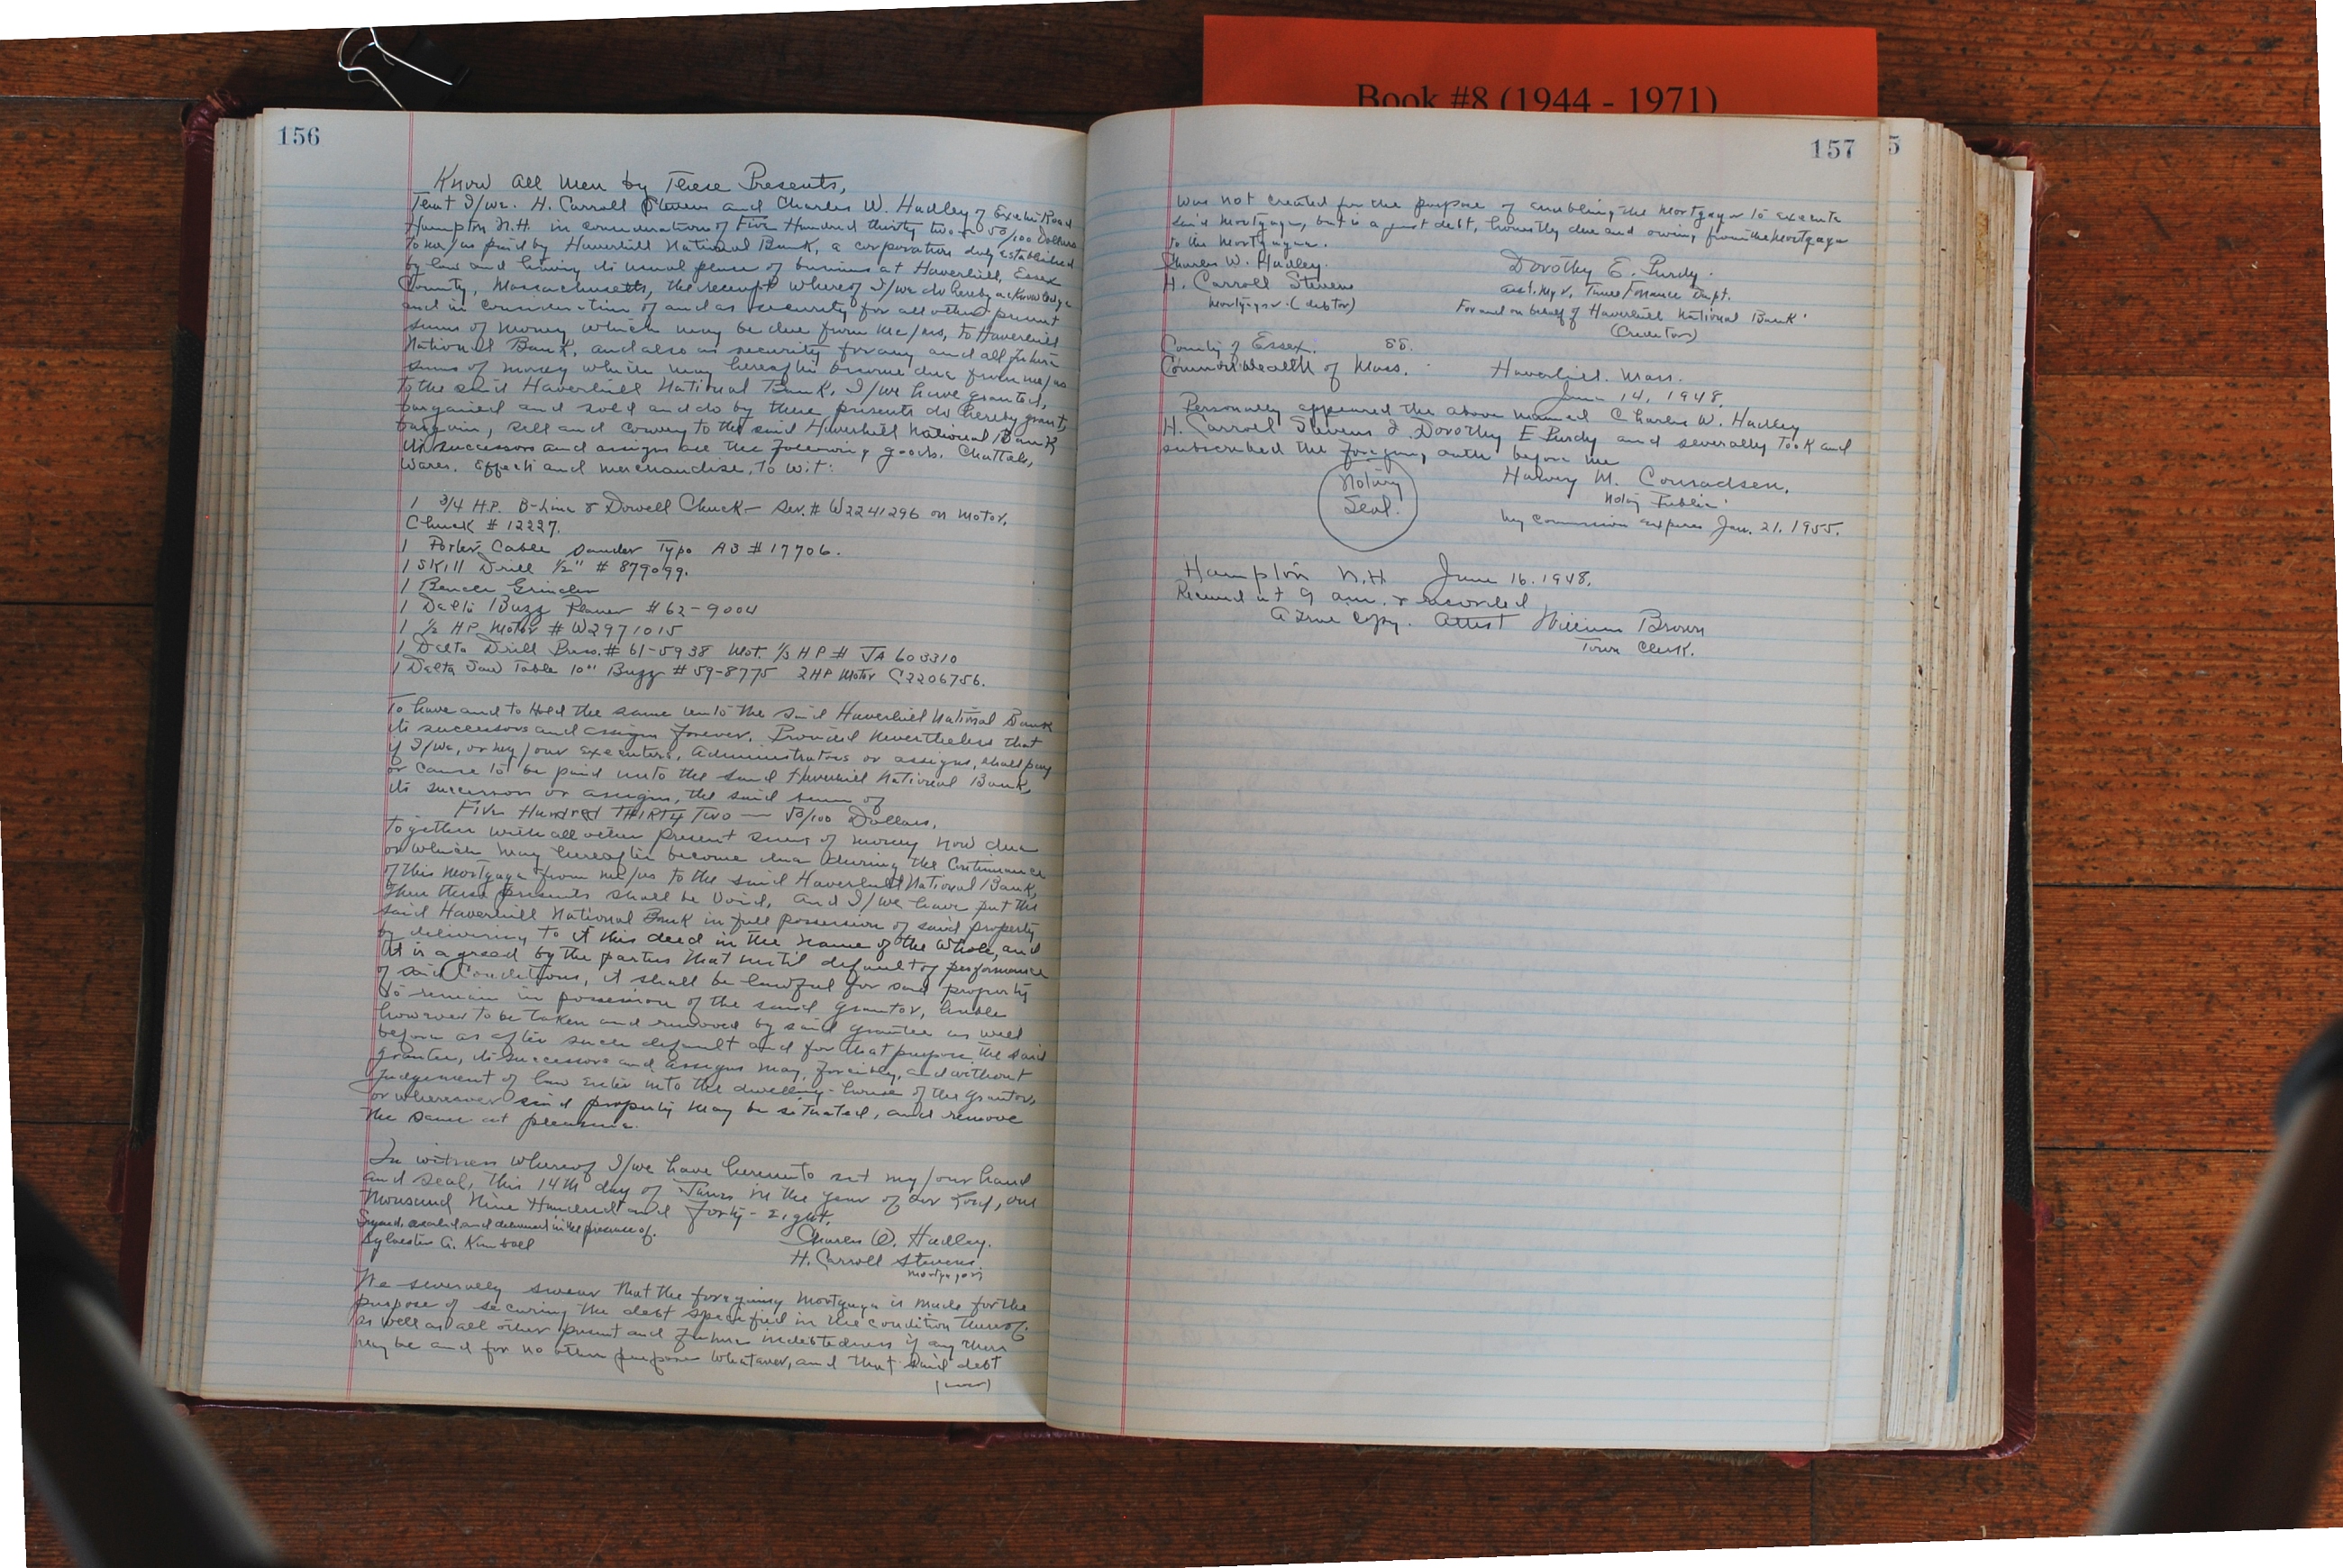 Book #8 (1944 - 1971)
156
Know all Men by These Presents,
That I/we. H. Carroll Stevens and Charles W. Hadley of Exeter Road
Hampton N.H. in consideration of Five Hundred thirty two - 50/100 Dollars
to me/us paid by Haverhill National Bank, a corporation duly established
by law and having its usual place of business at Haverhill, Essex
County, Massachusetts, the receipt whereof I/we do hereby acknowledge
and in consideration of and as security for all other present
sums of money which may be due from me/us, to Haverhill
National Bank, and also as security for any and all future
sums of money which may hereafter become due from me/us
to the said Haverhill National Bank, I/we have granted,
bargained and sold and do by these presents do hereby grant,
bargain, sell and convey to the said Haverhill National Bank
its successors and assigns all the following goods, Chattels,
Wares, Effects and merchandise, to wit:
1 3/4 H.P. B-Line & Dowell Chuck - Ser. # W2241296 on motor.
Chuck # 12227.
1 Porter Cable Sander Type A3 # 17706.
1 Skill Drill 1/2" # 879099.
1 Bench Grinder
1 Delta Buzz Planer # 62-9004
1 1/2 HP Motor # W2971015
1 Delta Drill Press. # 61-5938 Mot. 1/3 HP # JA 603310
1 Delta Saw Table 10" Buzz # 59-8775 2HP Motor C2206756.
To have and to Hold the same unto the said Haverhill National Bank
its successors and assigns forever. Provided Nevertheless that
if I/we, or my/our executors, administrators or assigns, shall pay
or cause to be paid unto the said Haverhill National Bank,
its successors or assigns, the said sum of
Five Hundred THIRTY Two — 50/100 Dollars,
together with all other present sums of money now due
or which may hereafter become due during the continuance
of this mortgage from me/us to the said Haverhill National Bank,
then these presents shall be void, and I/we have put the
said Haverhill National Bank in full possession of said property
by delivering to it this deed in the name of the whole, and
it is agreed by the parties that until default of performance
of said conditions, it shall be lawful for said property
to remain in possession of the said grantor, liable
however to be taken and removed by said grantee as well
before as after such default and for that purpose the said
grantee, its successors and assigns may, forcibly, and without
Judgement of law enter into the dwelling-house of the grantor,
or wherever said property may be situated, and remove
the same at pleasure.
In witness whereof I/we have hereunto set my/our hand
and seal, this 14th day of June in the year of our Lord, one
thousand Nine Hundred and Forty-Eight.
Signed, sealed and delivered in the presence of.
Sylvester A. Kimball
Charles W. Hadley.
H. Carroll Stevens
Mortgagors
We severally swear that the foregoing mortgage is made for the
purpose of securing the debt specified in the condition thereof.
as well as all other present and future indebtedness if any there
may be and for no other purpose whatever, and that said debt
(over)
157
was not created for the purpose of enabling the mortgagor to execute
said mortgage, but is a just debt, honestly due and owing from the mortgagor
to the mortgagee.
Charles W. Hadley.
H. Carroll Stevens
Mortgagor (debtor)
Dorothy E. Purdy.
Asst. Mgr. Time Finance Dept.
For and on behalf of Haverhill National Bank
(Creditor)
County of Essex. SS.
Commonwealth of Mass.
Haverhill. Mass.
June 14, 1948.
Personally appeared the above named Charles W. Hadley
H. Carroll Stevens & Dorothy E Purdy and severally took and
subscribed the foregoing oath before me
Notary
Seal.
Harvey M. Conradsen,
Notary Public
My commission expires Jan. 21, 1955.
Hampton N.H. June 16. 1948.
Received at 9 a.m. & recorded
A True Copy. Attest William Brown
Town Clerk.
5